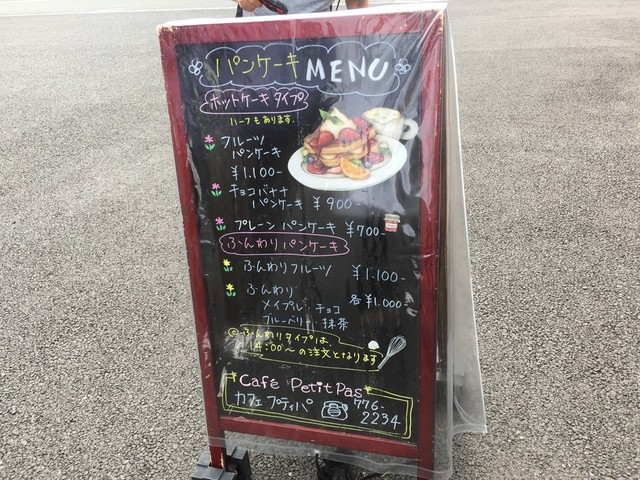 パンケーキ MENU
ホットケーキタイプ
ハーフもあります.
フルーツ
パンケーキ
¥1.100-
チョコバナナ
パンケーキ ¥900-
プレーン パンケーキ ¥700-
ふんわりパンケーキ
ふんわりフルーツ ¥1.100-
ふんわり
メイプル・チョコ 各¥1.000-
ブルーベリー・抹茶
◎ふんわりタイプは、
14:00〜の注文となります
Café Petit Pas
カフェ プティパ ☎ 776-
2234